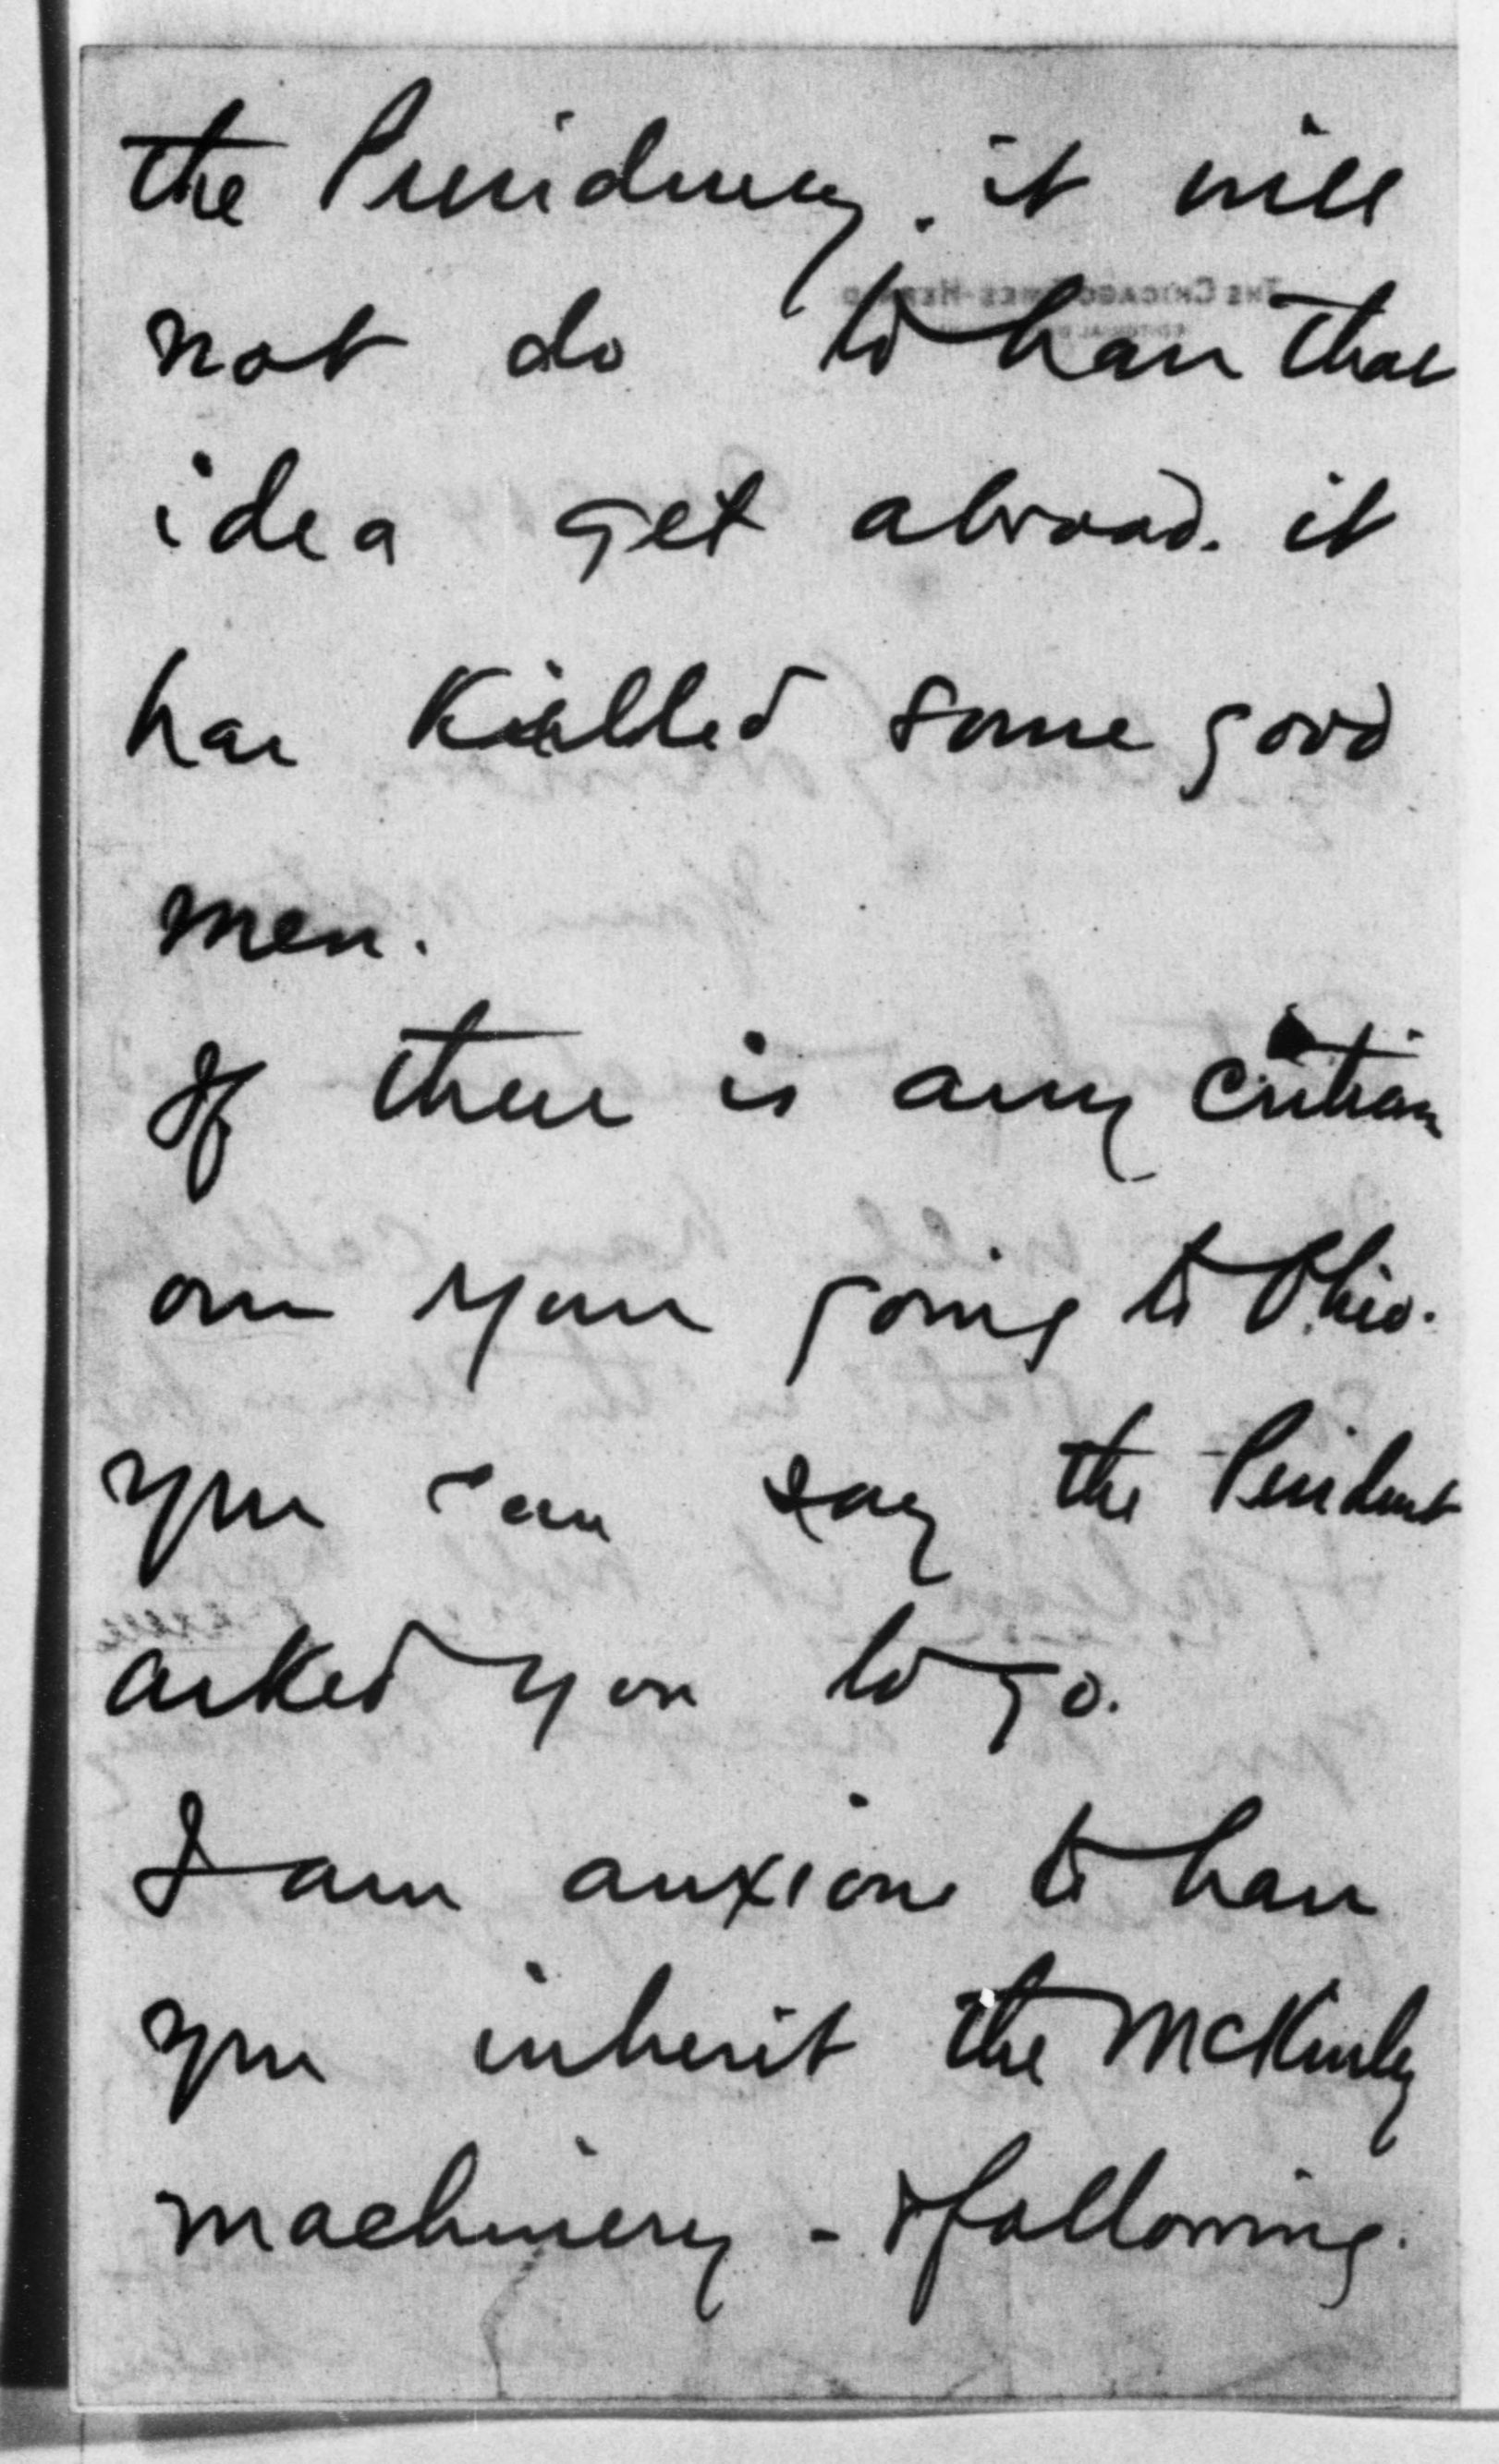 the Presidency. it will
not do to have that
idea get abroad. it
has killed some good
men.
If there is any criticism
on your going to Ohio.
you can say the President
asked you to go.
I am anxious to have
you inherit the McKinley
machinery - & following.